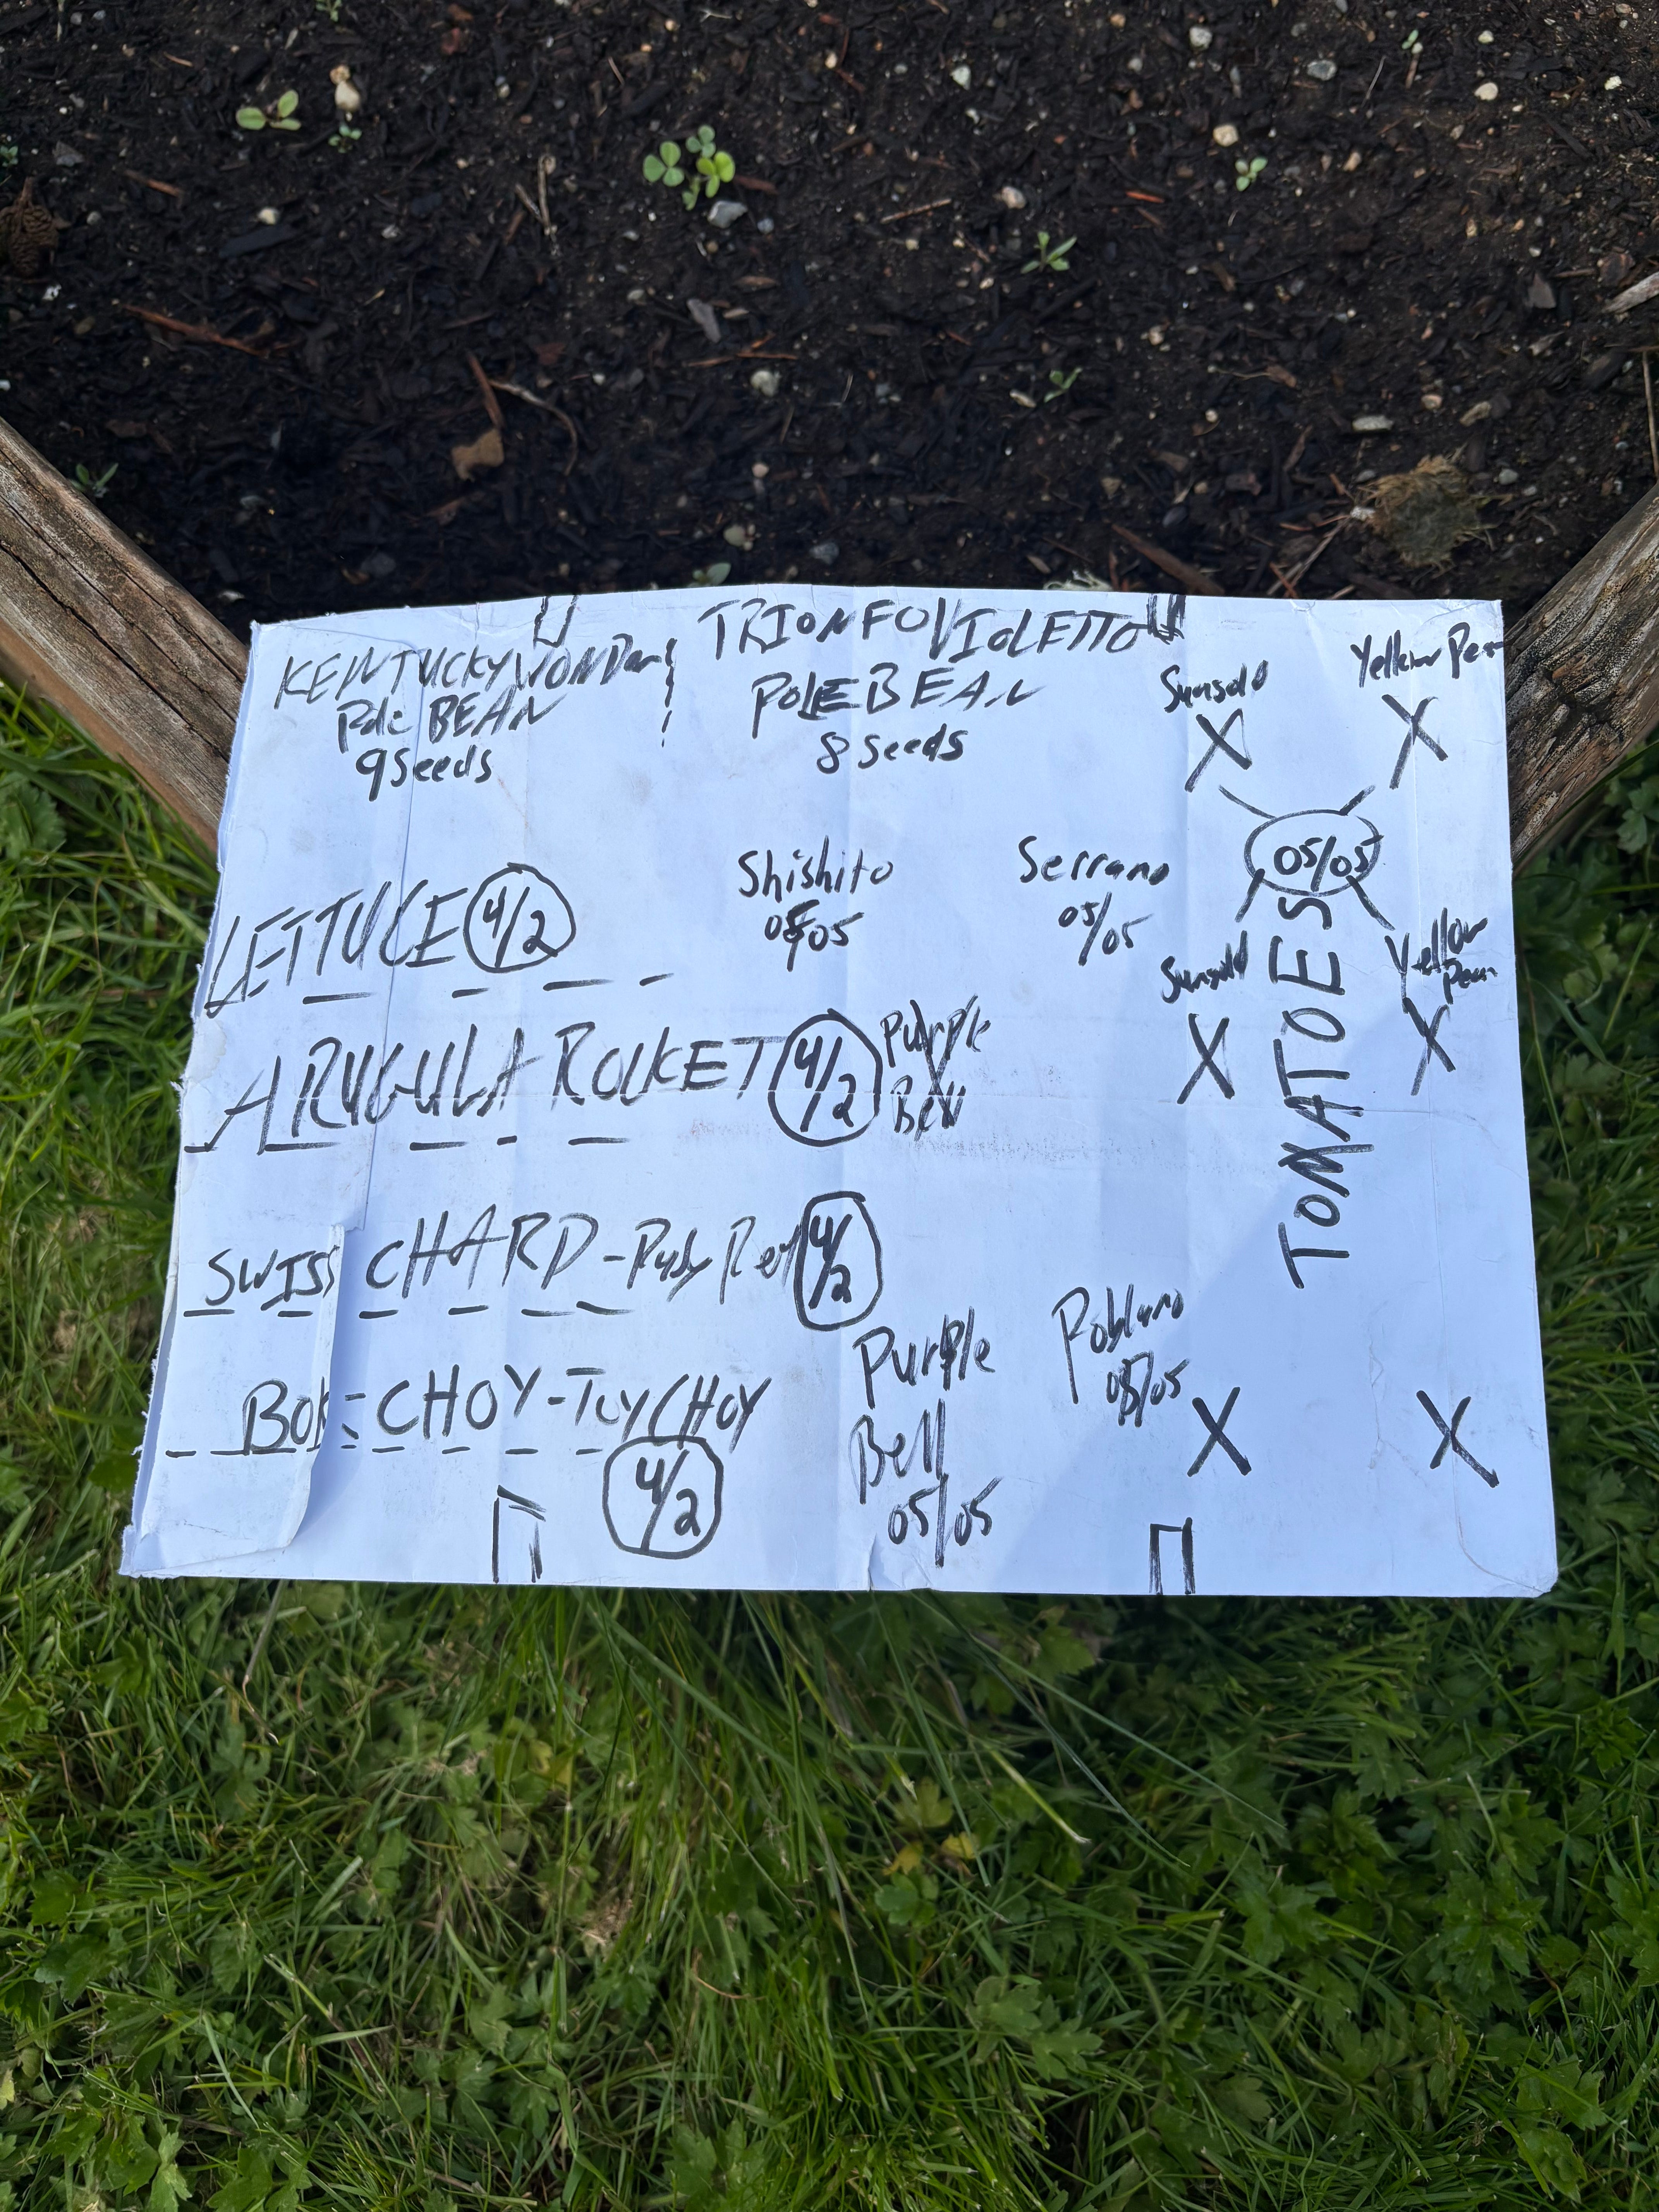 KENTUCKY WONDER
Pole BEAN
9 Seeds
TRIONFO VIOLETTO
POLE BEAN
8 Seeds
Sungold
Yellow Pear
X X
05/05
LETTUCE 4/2
Shishito
05/05
Serrano
05/05
Sungold
Yellow
Pear
X X
TOMATOES
ARUGULA ROCKET 4/2
Purple
Bell
SWISS CHARD - Ruby Red 4/2
BOK-CHOY - Toy CHOY
4/2
Purple
Bell
05/05
Poblano
05/05
X X